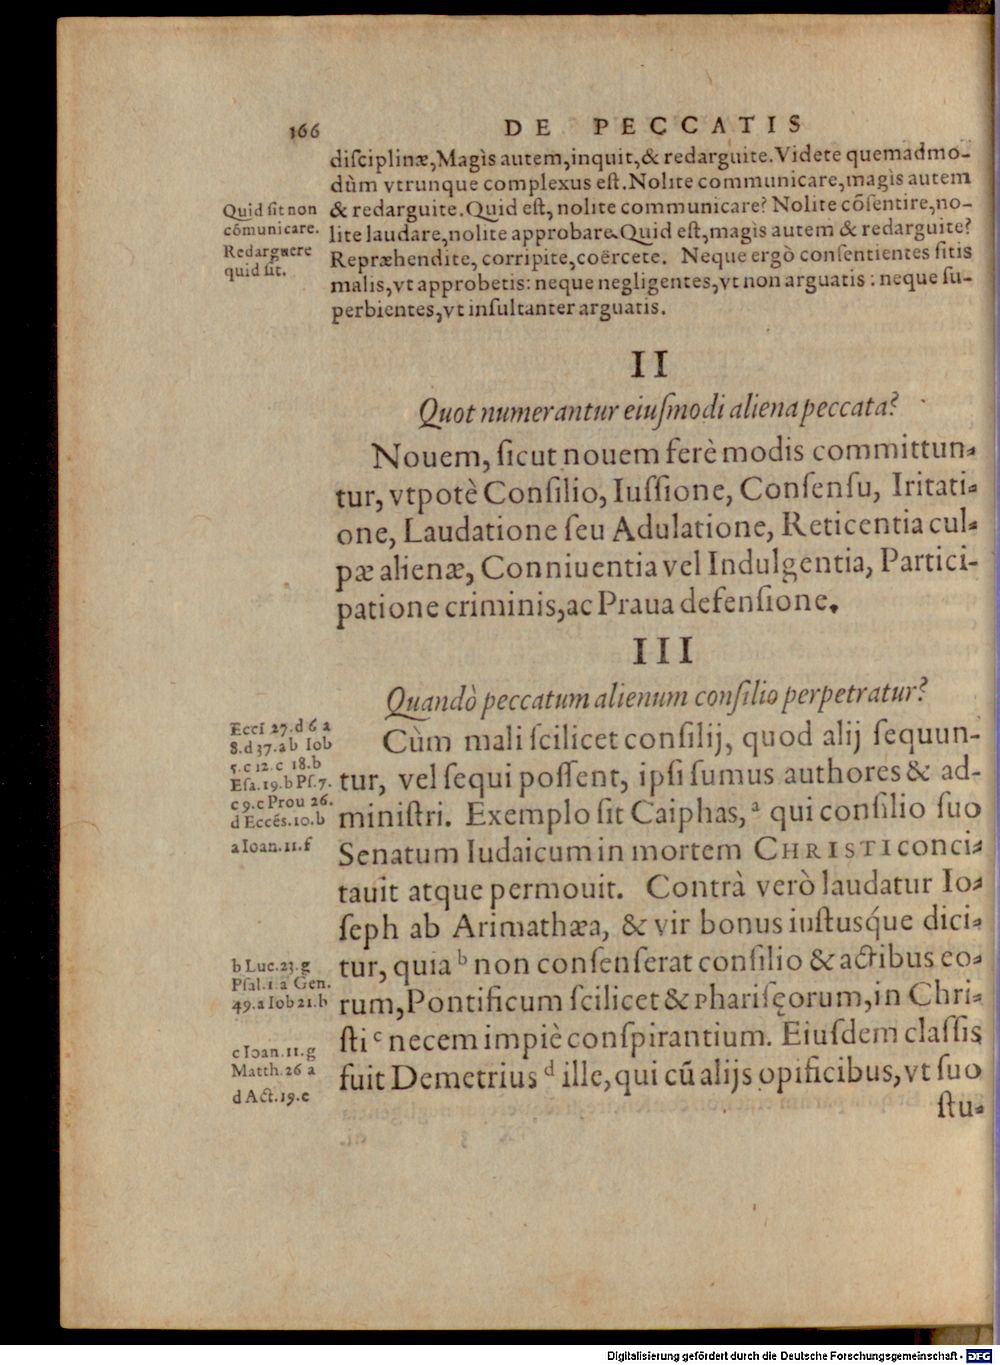 166
DE PECCATIS
diſciplinæ,Magìs autem,inquit,& redarguite.Videte quemadmo-
dùm vtrunque complexus eſt.Nolite communicare,magìs autem
& redarguite.Quid eſt, nolite communicare? Nolite cõſentire,no-
lite laudare,nolite approbare.Quid eſt,magìs autem & redarguite?
Repræhendite, corripite,coërcete. Neque ergò conſentientes ſitis
malis,vt approbetis: neque negligentes,vt non arguatis : neque ſu-
perbientes,vt inſultanter arguatis.
Quid ſit non
cõmunicare.
Redarguere
quid ſit.
II
Quot numerantur eiuſmodi aliena peccata?
Nouem, ſicut nouem ferè modis committun-
tur, vtpotè Conſilio, Iuſſione, Conſenſu, Iritati-
one, Laudatione ſeu Adulatione, Reticentia cul-
pæ alienæ, Conniuentia vel Indulgentia, Partici-
patione criminis,ac Praua defenſione.
III
Quandò peccatum alienum conſilio perpetratur?
Cùm mali ſcilicet conſilij, quod alij ſequun-
tur, vel ſequi poſſent, ipſi ſumus authores & ad-
miniſtri. Exemplo ſit Caiphas, a qui conſilio ſuo
Senatum Iudaicum in mortem CHRISTI conci-
tauit atque permouit. Contrà verò laudatur Io-
ſeph ab Arimathæa, & vir bonus iuſtusq́ue dici-
tur, quia b non conſenſerat conſilio & actibus eo-
rum,Pontificum ſcilicet & Phariſęorum,in Chri-
ſti c necem impiè conſpirantium. Eiuſdem claſſis
fuit Demetrius d ille,qui cũ alijs opificibus,vt ſuo
ſtu-
Eccĺ 27.d 6 a
8.d 37.ab Iob
5.c 12.c 18.b
Eſa.19.b Pſ.7.
c 9.c Prou 26.
d Eccés.10.b
a Ioan.11.f
b Luc.23.g
Pſal.1.a Gen.
49.a Iob 21.b
c Ioan.11.g
Matth.26 a
d Act.19.e
Digitalisierung gefördert durch die Deutsche Forschungsgemeinschaft - DFG